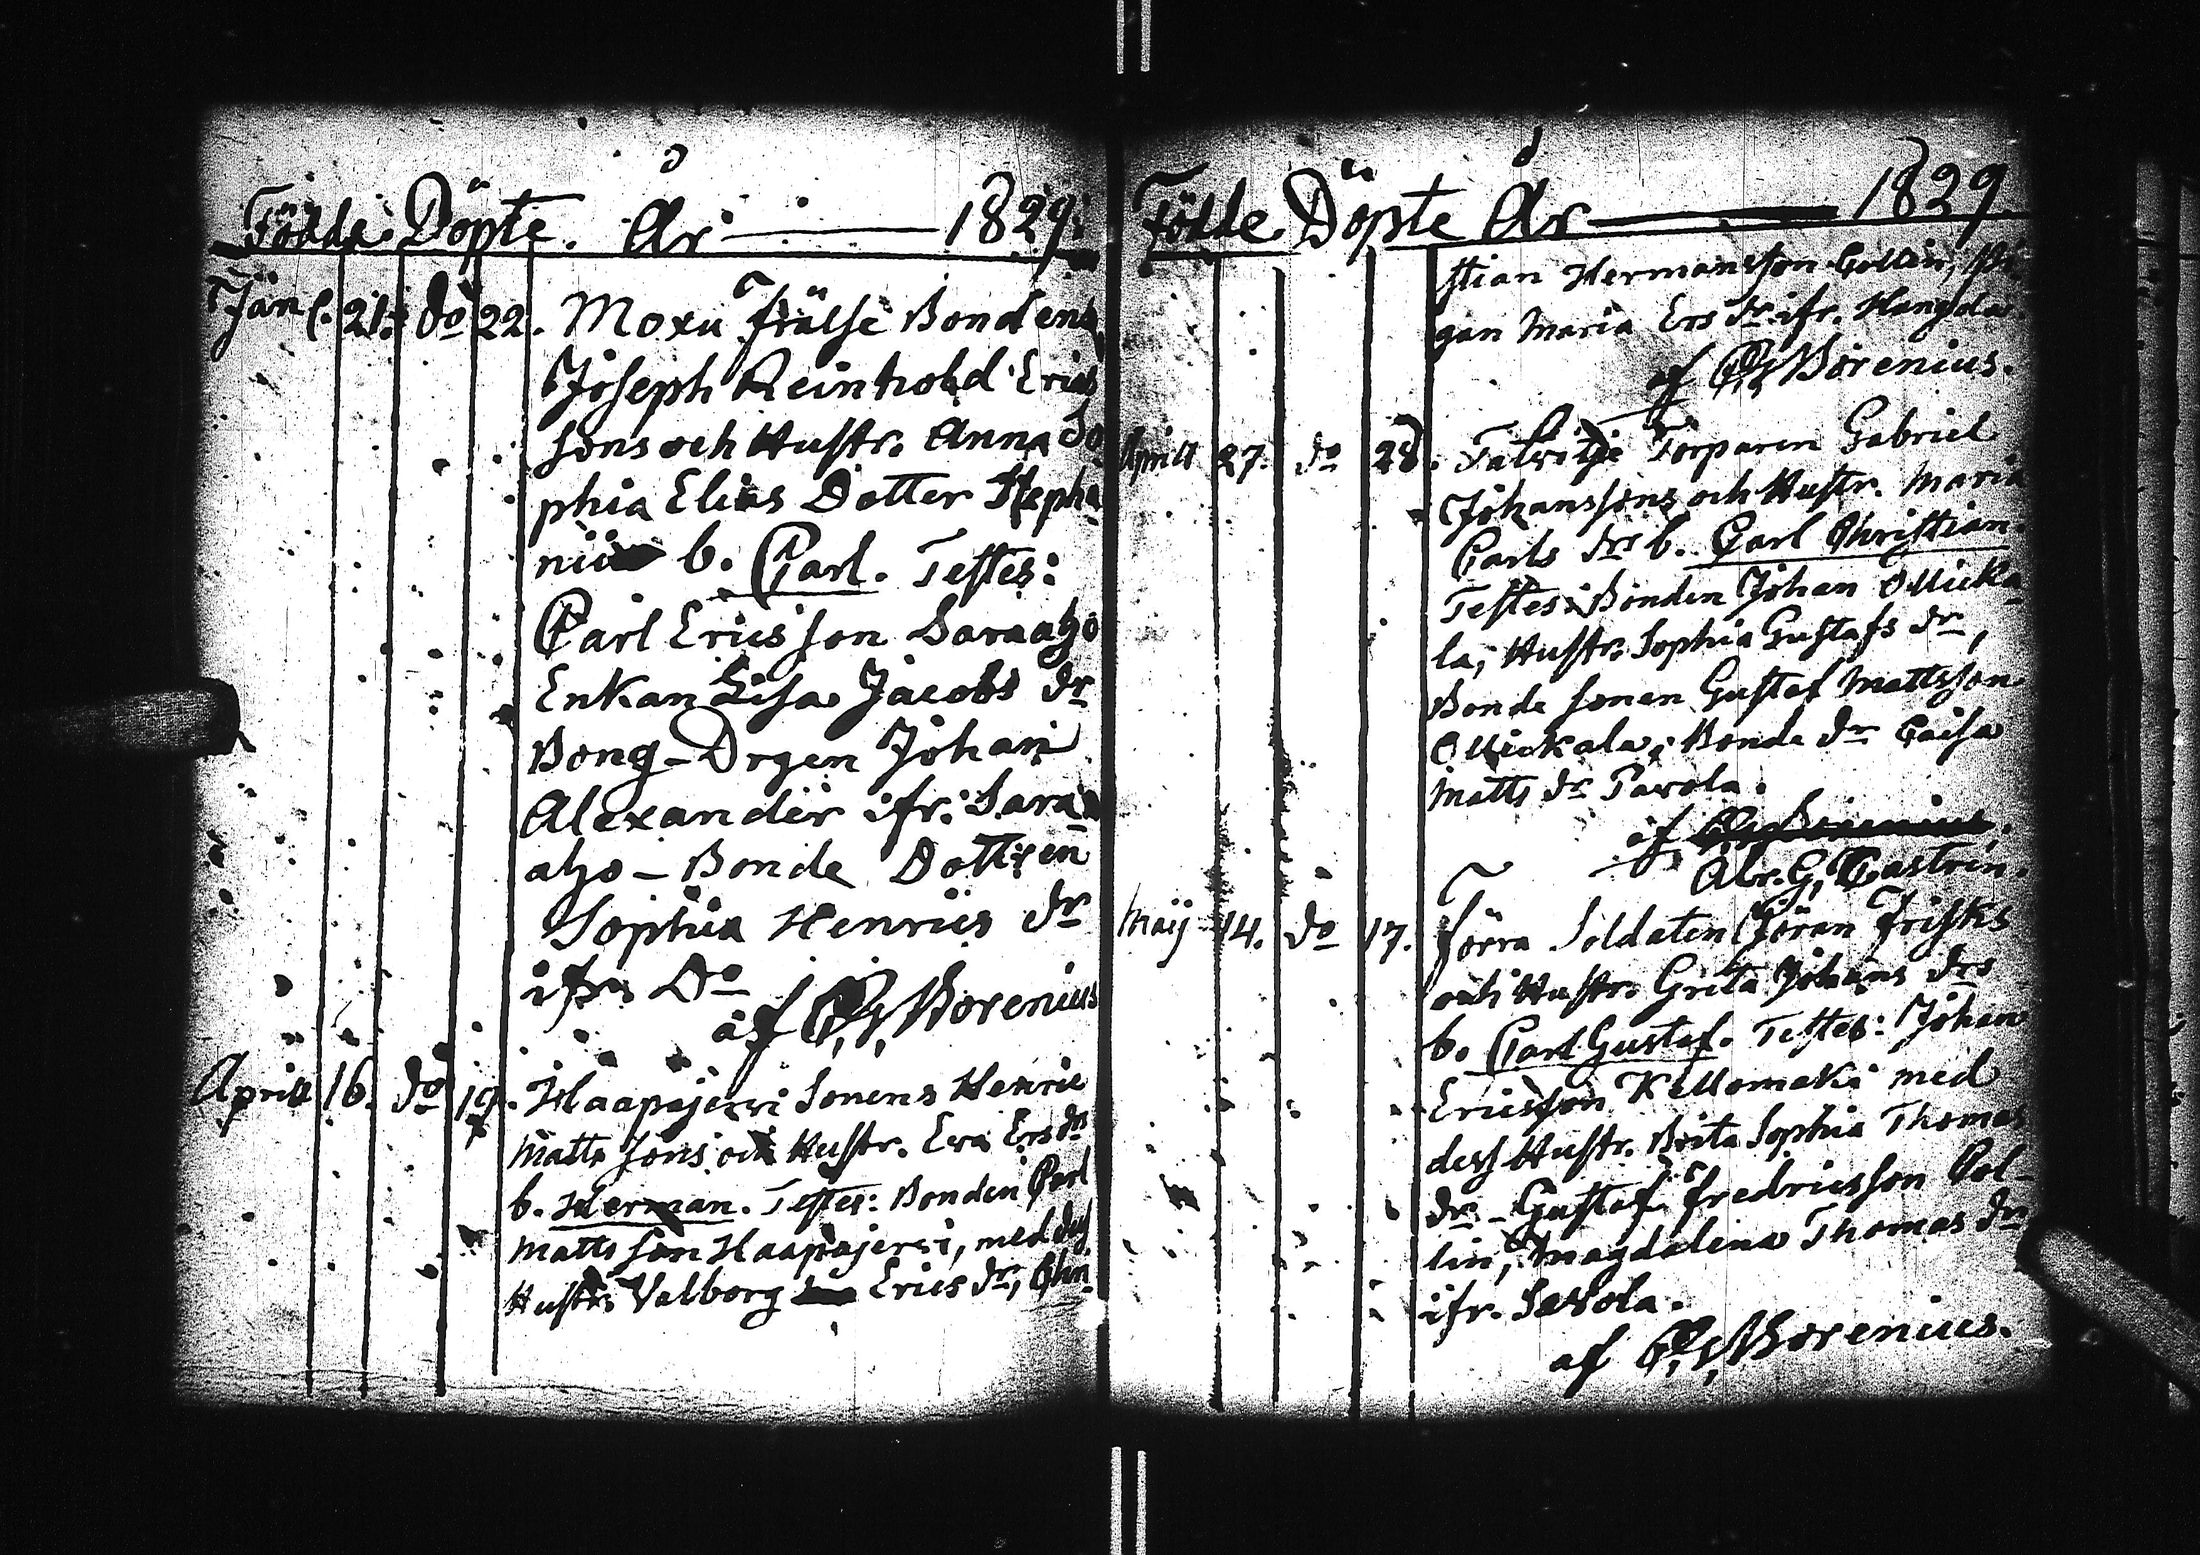 Födde. Döpte. År — 1829.
Jan. 21. do 22. Moxu Frälse Bondens
Joseph Reinhold Erics
sons och Hustr. Anna So
phia Elias Dotter Stepha
nii b. Carl. Testes:
Carl Ericsson Saraaho
Enkan Lisa Jacobs dr
Bong-Drgen Johan
Alexander ifr. Sara-
aho - Bonde Dottren
Sophia Henrics dr
ifr. Do
af C. G. Borenius
Aprill 16. do 19. Haapajerwi Sonens Henric
Matts sons och Hustr. Eva Ers drs
b. Herman. Testes: Bonden Carl
Matts son Haapajerwi, med dess
Hustr. Valborg Erics dr, Chri
Födde. Döpte År — 1829
stian Hermansson Collin, Pi
gan Maria Ers dr. ifr.
af C. G. Borenius.
Aprill 27. do 28. Talwitje Torparen Gabriel
Johanssons och Hustr. Maria
Carls drs b. Carl Christian.
Testes: Bonden Johan Ollicka-
la, Hustr. Sophia Gustafs dr,
Bonde sonen Gustaf Mattsson
Ollickala, Bonde dr Caisa
Matts dr Pavola.
af C. G. Borenius.
Abr. G. Castrin.
Maij 14. do 17. Förra Soldaten Göran Frisks
och Hustr. Grita Johans drs
b. Carl Gustaf. Testes: Johan
Ericsson Kellomäki med
dess Hustr. Brita Sophia Thomas
dr. - Gustaf Fredricsson Col-
lin, Magdalena Thomas dr
ifr. Savola.
af C. G. Borenius.